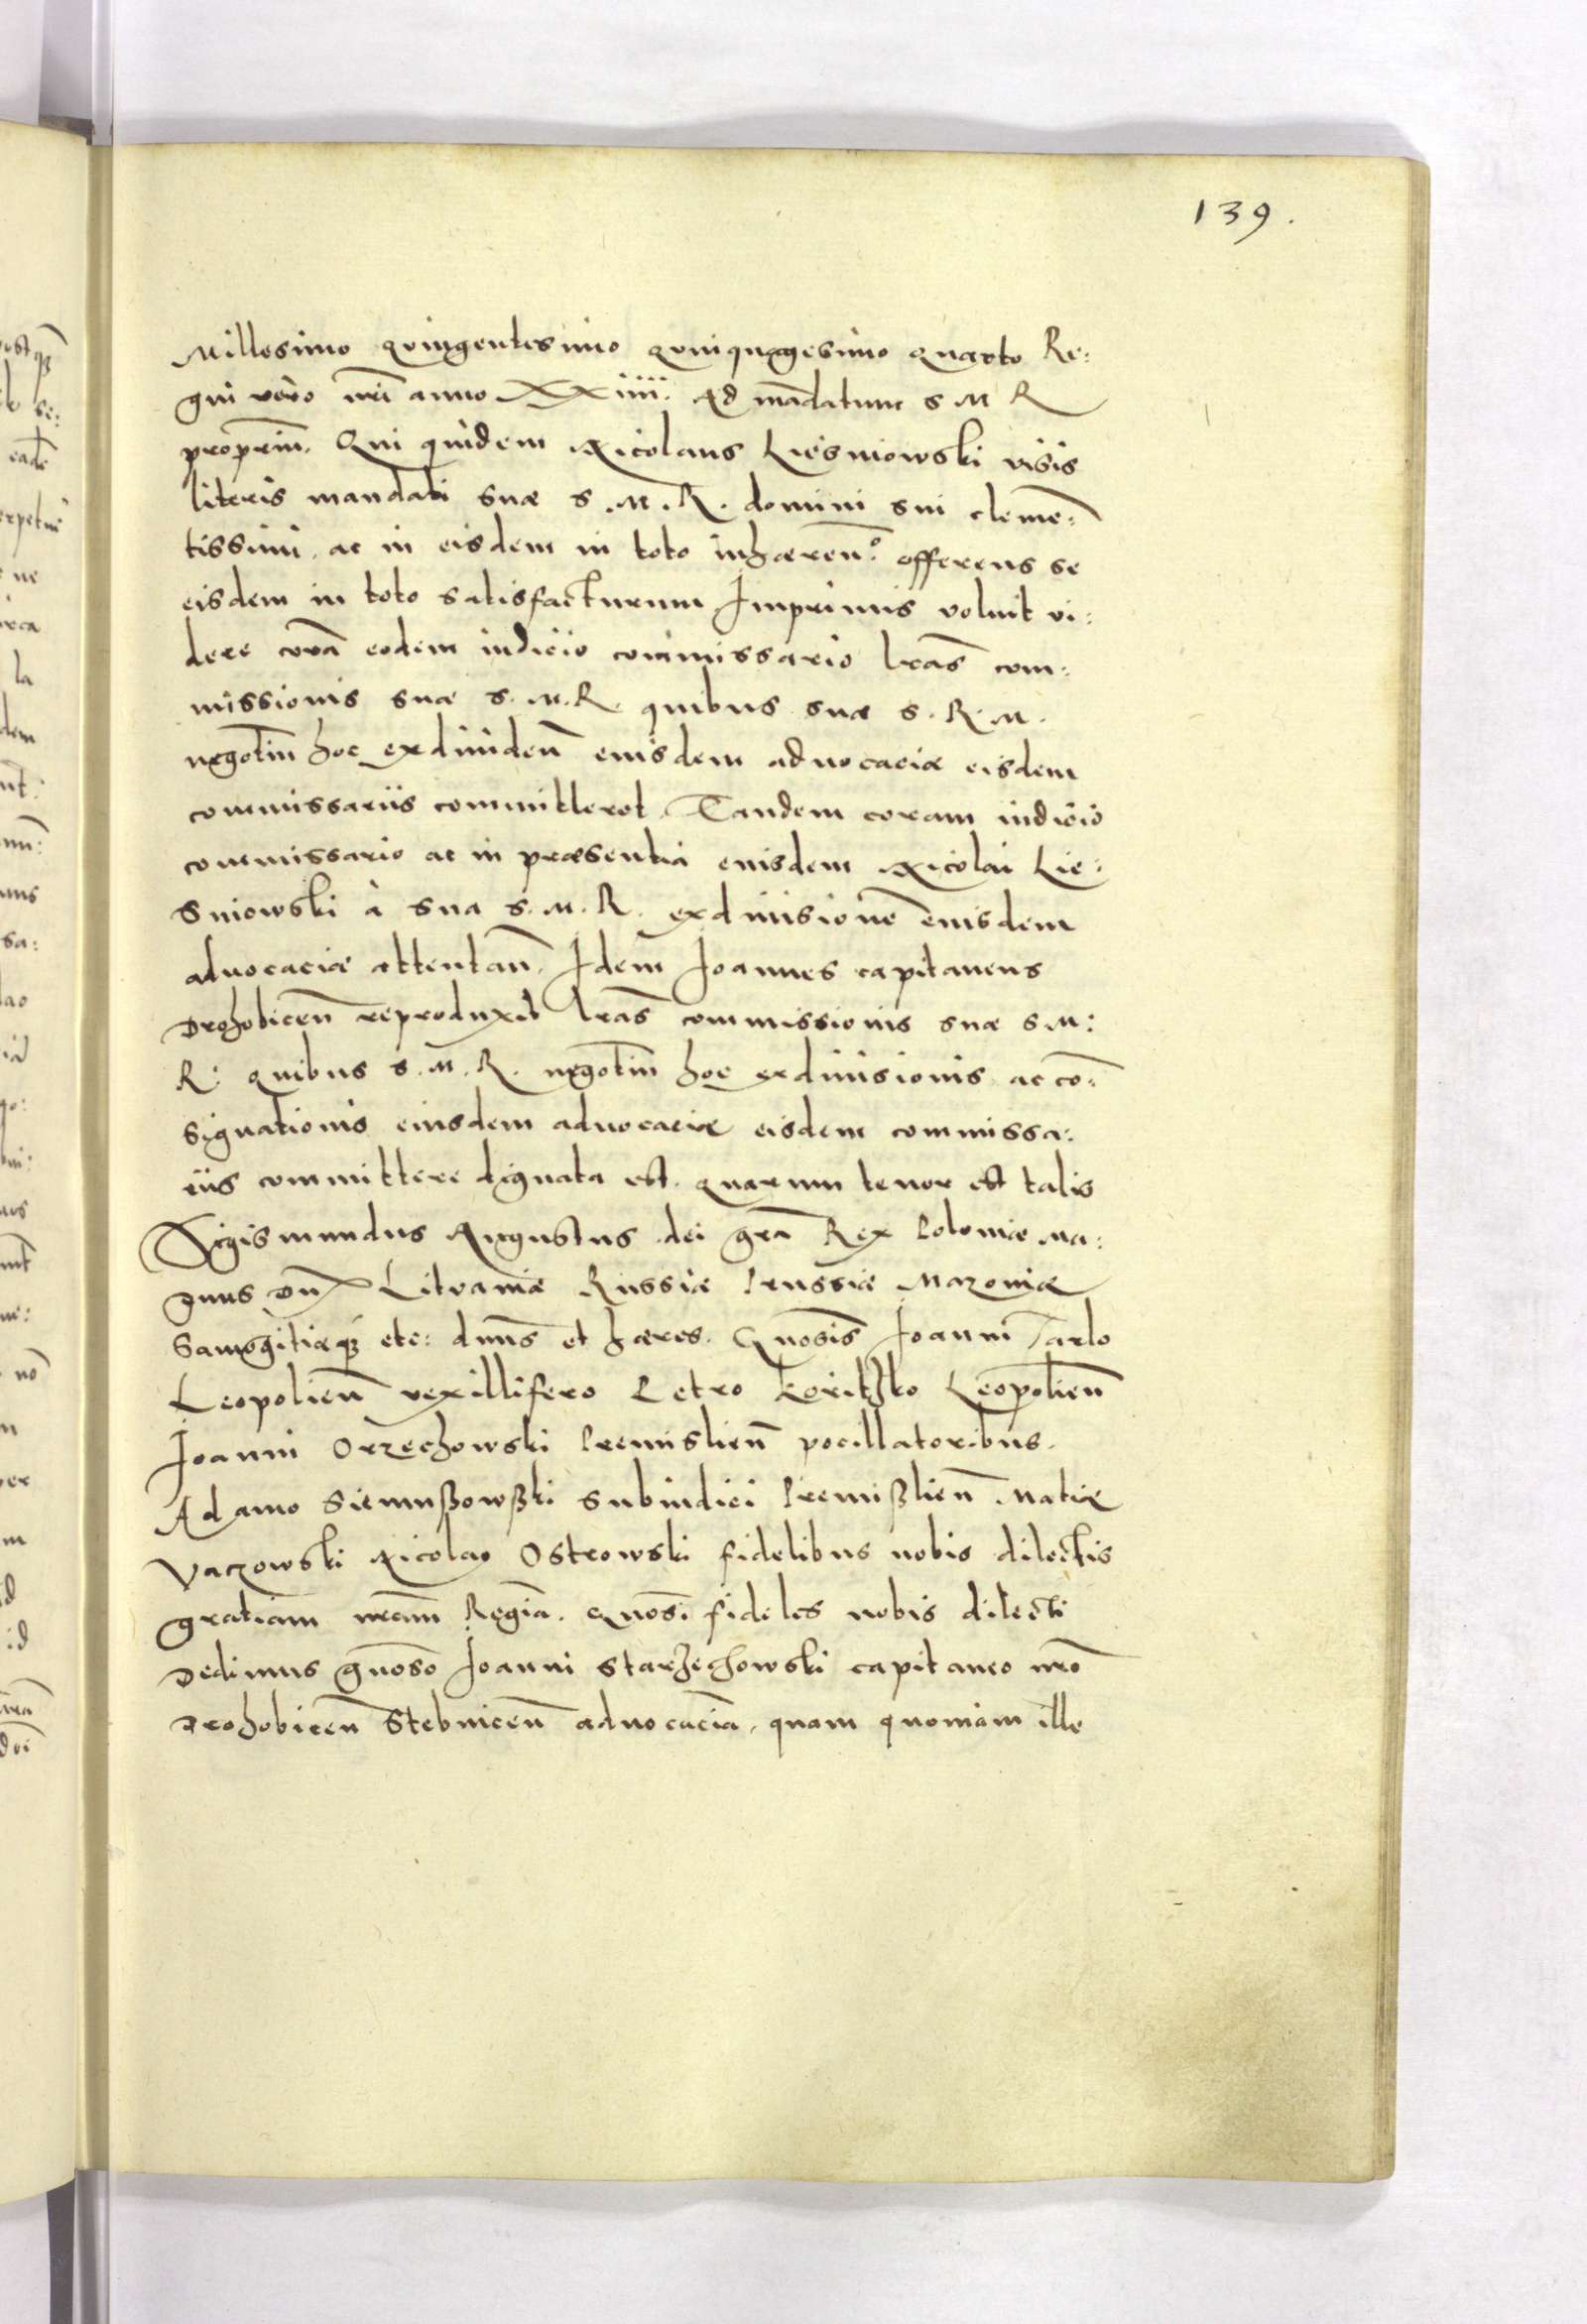 139.
Millesimo quingentesimo quinquagesimo quarto Re:
gni vero nr̃i anno XXiiii. Ad mãdatum S M R
propriũ. Qui quidem Nicolaus Liesniowski visis
literis mandati suæ S. M. R. domini sui clemẽ:
tissimi, ac in eisdem in toto inhæreñ: offerens se
eisdem in toto satisfacturum Imprimis voluit vi:
dere corã eodem iudicio commissario lr̃as com:
missionis suæ S. M. R. quibus suæ S. R. M.
negotiũ hoc exdiuideñ eiusdem aduocaciæ eisdem
commissariis committeret. Tandem coram iudicio
commissario ac in præsentia eiusdem Nicolai Lie:
sniowski à sua S. M. R. exdiuisionẽ eiusdem
aduocaciæ attentañ. Idem Joannes capitaneus
Drohobiceñ reproduxit lr̃as commissionis suæ S M:
R: quibus S. M. R. negotiũ hoc exdiuisionis ac cõ:
signationis eiusdem aduocaciæ eisdem commissa:
riis committere dignata est. quarum tenor est talis
Sigismundus Augustus dei grã Rex Poloniæ Ma:
gnus Dux Lituaniæ Russiæ Prussiæ Mazoviæ
Samogitiæq̃ etc: dñus et hæres. Gñosis Joanni Tarlo
Leopolieñ vexillifero Petro Korithko Leopolieñ
Joanni Orzechowski Premislieñ pocillatoribus.
Adamo Siemußowßki Subiudici Premißlieñ Matiæ
Vaczowski Nicolao Ostrowski fidelibus nobis dilectis
gratiam nr̃am Regiã. Gñosi fideles nobis dilecti
Dedimus gñoso Joanni Starzechowski capitaneo nr̃o
Drohobiceñ Stebniceñ aduocaciã, quam quoniam ille